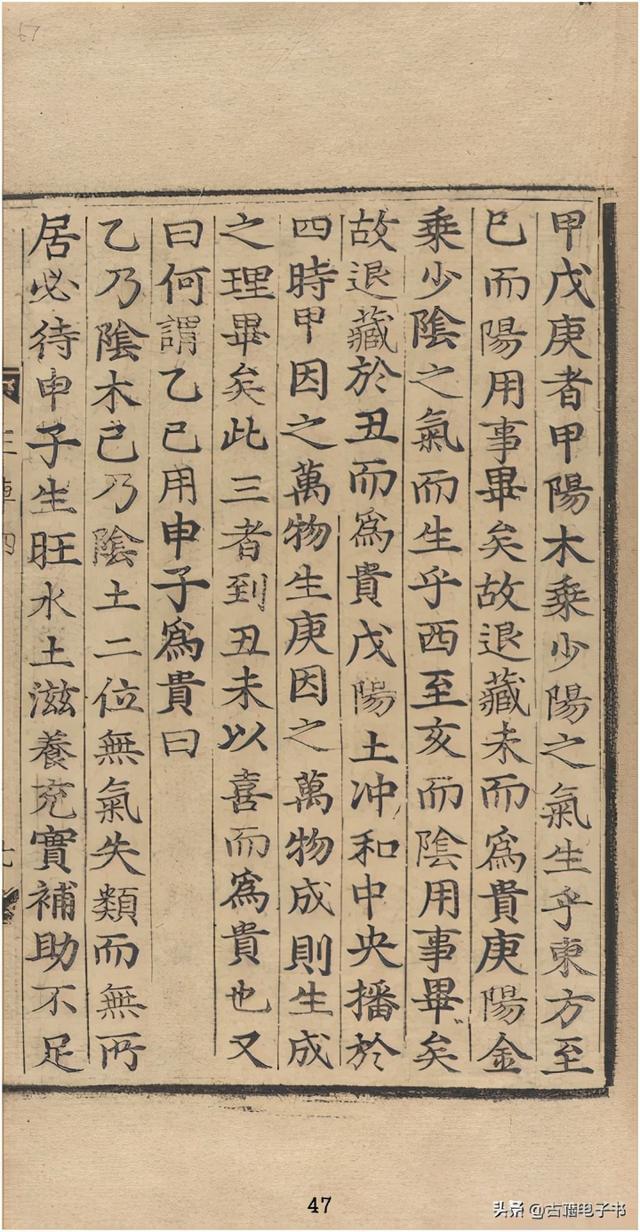 甲戊庚者甲陽木乘少陽之氣生乎東方至
巳而陽用事畢矣故退藏未而爲貴庚陽金
乘少陰之氣而生乎西至亥而陰用事畢矣
故退藏於丑而爲貴戊陽土冲和中央播於
四時甲因之萬物生庚因之萬物成則生成
之理畢矣此三者到丑未以喜而爲貴也又
曰何謂乙己用申子爲貴曰
乙乃陰木己乃陰土二位無氣失類而無所
居必待申子生旺水土滋養充實補助不足
47
头条 @古籍电子书